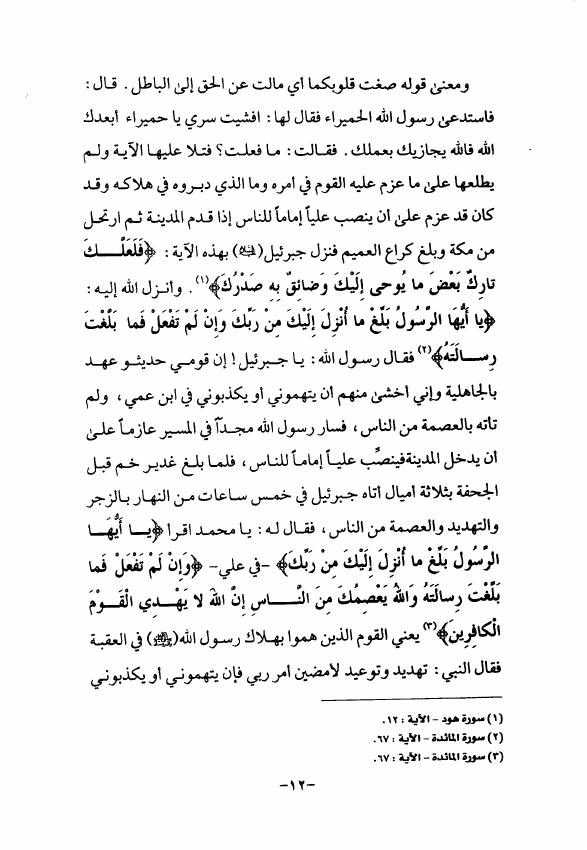 ومعنىٰ قوله صغت قلوبكما أي مالت عن الحق إلىٰ الباطل . قـال :
فاستدعىٰ رسول الله الحميراء فقال لها : افشيت سري يا حميراء أبعدك
الله فالله يجازيك بعملك . فقـالت : مـا فعلت؟ فتـلا عليهـا الآيـة ولـم
يطلعها علىٰ ما عزم عليه القوم في امره وما الذي دبـروه في هلاكـه وقـد
كان قد عزم علىٰ أن ينصب علياً إماماً للناس إذا قدم المدينة ثـم ارتحل
من مكة وبلغ كراع العميم فنزل جبرئيل (ﷺ) بهذه الآية : ﴿فَلَعَلَّــكَ
تارِكٌ بَعْضَ ما يُوحى إِلَيْكَ وَضائِقٌ بِهِ صَدْرُكَ﴾(١) . وأنـزل الله إليـه :
﴿يا أَيُّهَا الرَّسُولُ بَلِّغْ ما أُنْزِلَ إِلَيْكَ مِنْ رَبِّكَ وَإِنْ لَمْ تَفْعَلْ فَما بَلَّغْتَ
رِســالَتَهُ﴾(٢) فقـال رسول الله : يـا جـبرئيل ! إن قومـي حديثـو عهـد
بالجاهلية وإني أخشىٰ منهم أن يتهموني أو يكذبوني في ابن عمي ، ولم
تأته بالعصمة من الناس ، فسار رسول الله مجـدّاً في المسير عازمـاً علـىٰ
أن يدخل المدينةفينصِّب عليـاً إمامـاً للنـاس ، فلمـا بلـغ غديـر خـم قبـل
الجحفة بثلاثة أميال أتاه جـبرئيل في خمس سـاعات مـن النهـار بـالزجر
والتهديد والعصمة من الناس ، فقـال لـه : يـا محمـد اقـرأ ﴿يــا أَيُّهَـا
الرَّسُولُ بَلِّغْ ما أُنْزِلَ إِلَيْكَ مِنْ رَبِّكَ﴾ -في علي- ﴿وَإِنْ لَمْ تَفْعَلْ فَما
بَلَّغْتَ رِسالَتَهُ وَاللهُ يَعْصِمُكَ مِنَ النَّــاسِ إِنَّ اللهَ لا يَهْـدِي الْقَـوْمَ
الْكافِرِينَ﴾(٣) يعني القوم الذين هموا بهلاك رسول الله (ﷺ) في العقبة
فقال النبي : تهديد وتوعيد لأمضين أمر ربي فإن يتهموني أو يكذبوني
(١) سورة هود - الآية : ١٢.
(٢) سورة المائدة - الآية : ٦٧.
(٣) سورة المائدة - الآية : ٦٧.
-١٢-